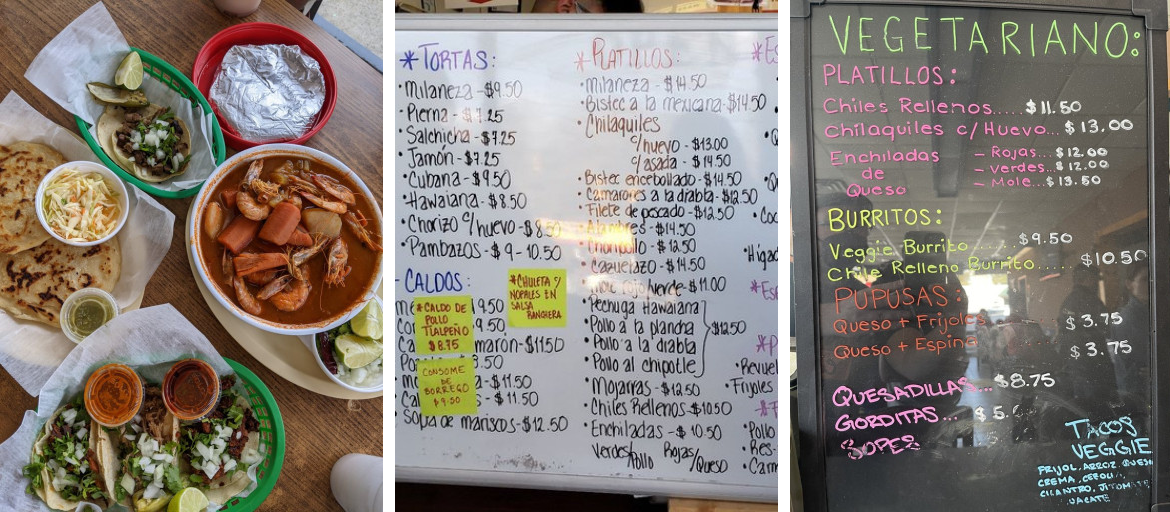 *TORTAS:
• Milaneza - $9.50
• Pierna - $7.25
• Salchicha - $7.25
• Jamón - $7.25
• Cubana - $9.50
• Hawaiana - $8.50
• Chorizo c/huevo - $8.50
• Pambazos - $9 - 10.50
- CALDOS:
9.50
9.50
marón - $11.50
3.50
a - $11.50
- $11.50
• Sopa de mariscos - $12.50
*CALDO DE
POLLO
TLALPEÑO
$8.75
CONSOME
DE
BORREGO
$9.50
*CHULETA c/
NOPALES EN
SALSA
RANCHERA
*PLATILLOS:
• Milaneza - $14.50
• Bistec a la mexicana - $14.50
• Chilaquiles
c/huevo - $13.00
c/asada - $14.50
• Bistec encebollado - $14.50
• Camarones a la diabla - $12.50
• Filete de pescado - $12.50
• Alambres - $14.50
- $12.50
• Cazuelazo - $14.50
- $11.00
• Pechuga Hawaiana
• Pollo a la plancha
• Pollo a la diabla
• Pollo al chipotle
$12.50
• Mojarras - $12.50
• Chiles Rellenos - $10.50
• Enchiladas - $10.50
Verdes/Rojas
Pollo/Queso
*Es
*Es
Revuel
• Frijoles
• Pollo
• Res-
VEGETARIANO:
PLATILLOS:
Chiles Rellenos..... $11.50
Chilaquiles c/Huevo... $13.00
Enchiladas
de
Queso
- Rojas... $12.00
- Verdes... $12.00
- Mole... $13.50
BURRITOS:
Veggie Burrito ...... $9.50
Chile Relleno Burrito..... $10.50
PUPUSAS:
Queso + Frijoles $3.75
Queso + Espina $3.75
QUESADILLAS... $8.75
GORDITAS... $5.
SOPES
TACOS
VEGGIE
FRIJOL, ARROZ, QUESO
CREMA, CEBOLL
CILANTRO, JITOMATE